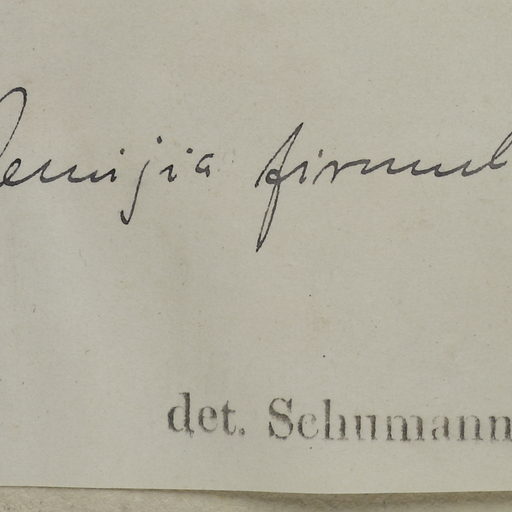 Remijia firmul
det. Schumann